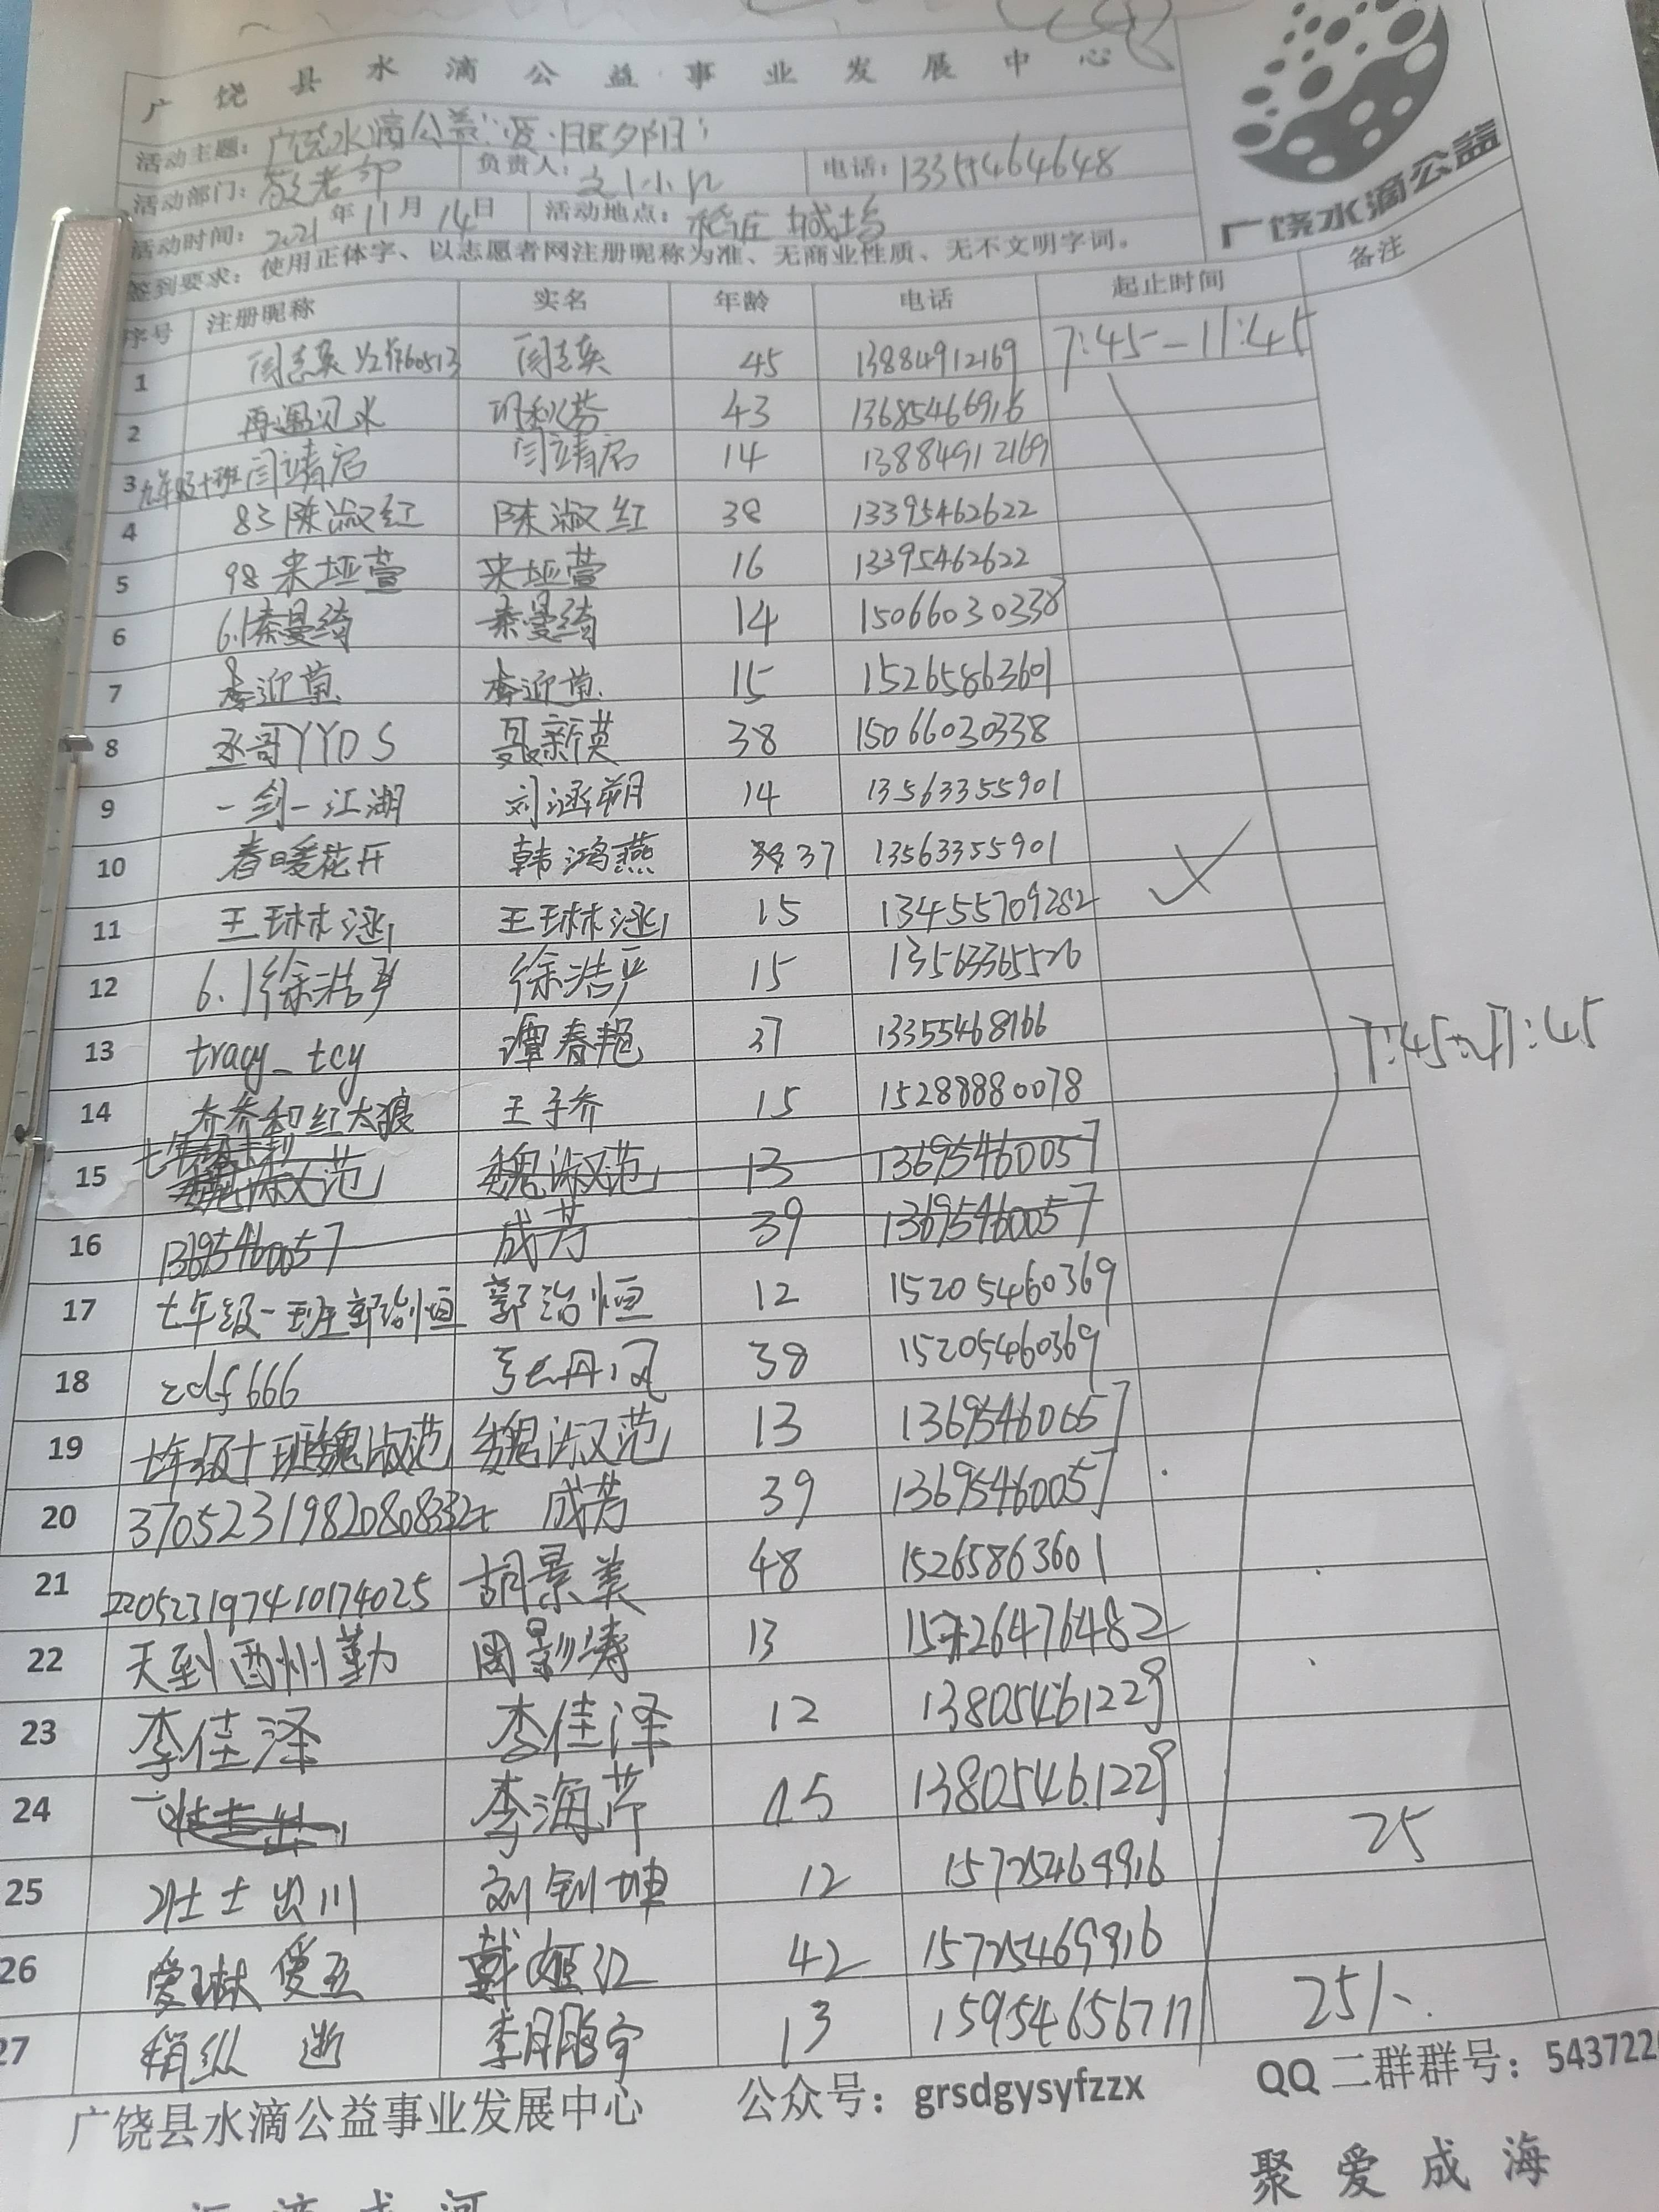 广饶县水滴公益事业发展中心
广饶水滴公益
活动主题：广饶水滴公益"爱·暖夕阳"
活动部门：敬老部 负责人： 电话：
活动时间：2021年11月14日 活动地点：稻庄
签到要求：使用正体字、以志愿者网注册昵称为准、无商业性质、无不文明字词。
序号 注册昵称 实名 年龄 电话 起止时间 备注
1 45 13884912169 7:45-11:45
2 再遇见 43 13685466916
3 九年级十班闫靖启 闫靖启 14 13884912169
4 83陈淑红 陈淑红 38 13395462622
5 98来垭萱 来垭萱 16 13395462622
6 6.1秦曼绮 秦曼绮 14 15066030338
7 李迎 李迎 15 15265863601
8 丞哥YYDS 聂新英 38 15066030338
9 一剑一江湖 刘涵朔 14 13563355901
10 春暖花开 韩鸿燕 37 13563355901
11 王琳涵 王琳涵 15 13455709282
12 6.1徐浩 徐浩 15
13 tracy_tcy 谭春艳 37 13355468166
7:45-11:45
14 乔乔和红太狼 王子乔 15 15288880078
15 魏淑范 魏淑范 13 13695460057
16 13695460057 成芳 39 13695460057
17 七年级一班郭治恒 郭治恒 12 15205460369
18 zdf666 张丹凤 38 15205460369
19 七年级十班魏淑范 魏淑范 13 13695460057
20 成芳 39 13695460057
21 胡景美 48 15265863601
22 天到酉州勤 周影涛 13
23 李佳泽 李佳泽 12 13805461229
24 李海芹 45 13805461229
25
25 壮士出川 刘钊坤 12 15725469916
26 爱琳爱亚 戴姬红 42 15725469916
27 稍纵 逝 李鹏宇 13
25人.
广饶县水滴公益事业发展中心 公众号：grsdgysyfzzx QQ二群群号：543722
聚爱成海